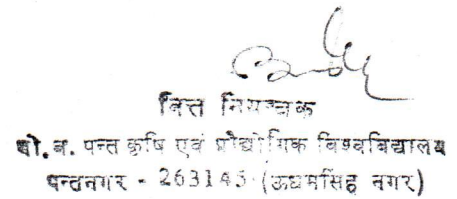 वित्त नियन्त्रक
गो. ब. पन्त कृषि एवं प्रौद्योगिक विश्वविद्यालय
पन्तनगर - 263145 (ऊधमसिंह नगर)